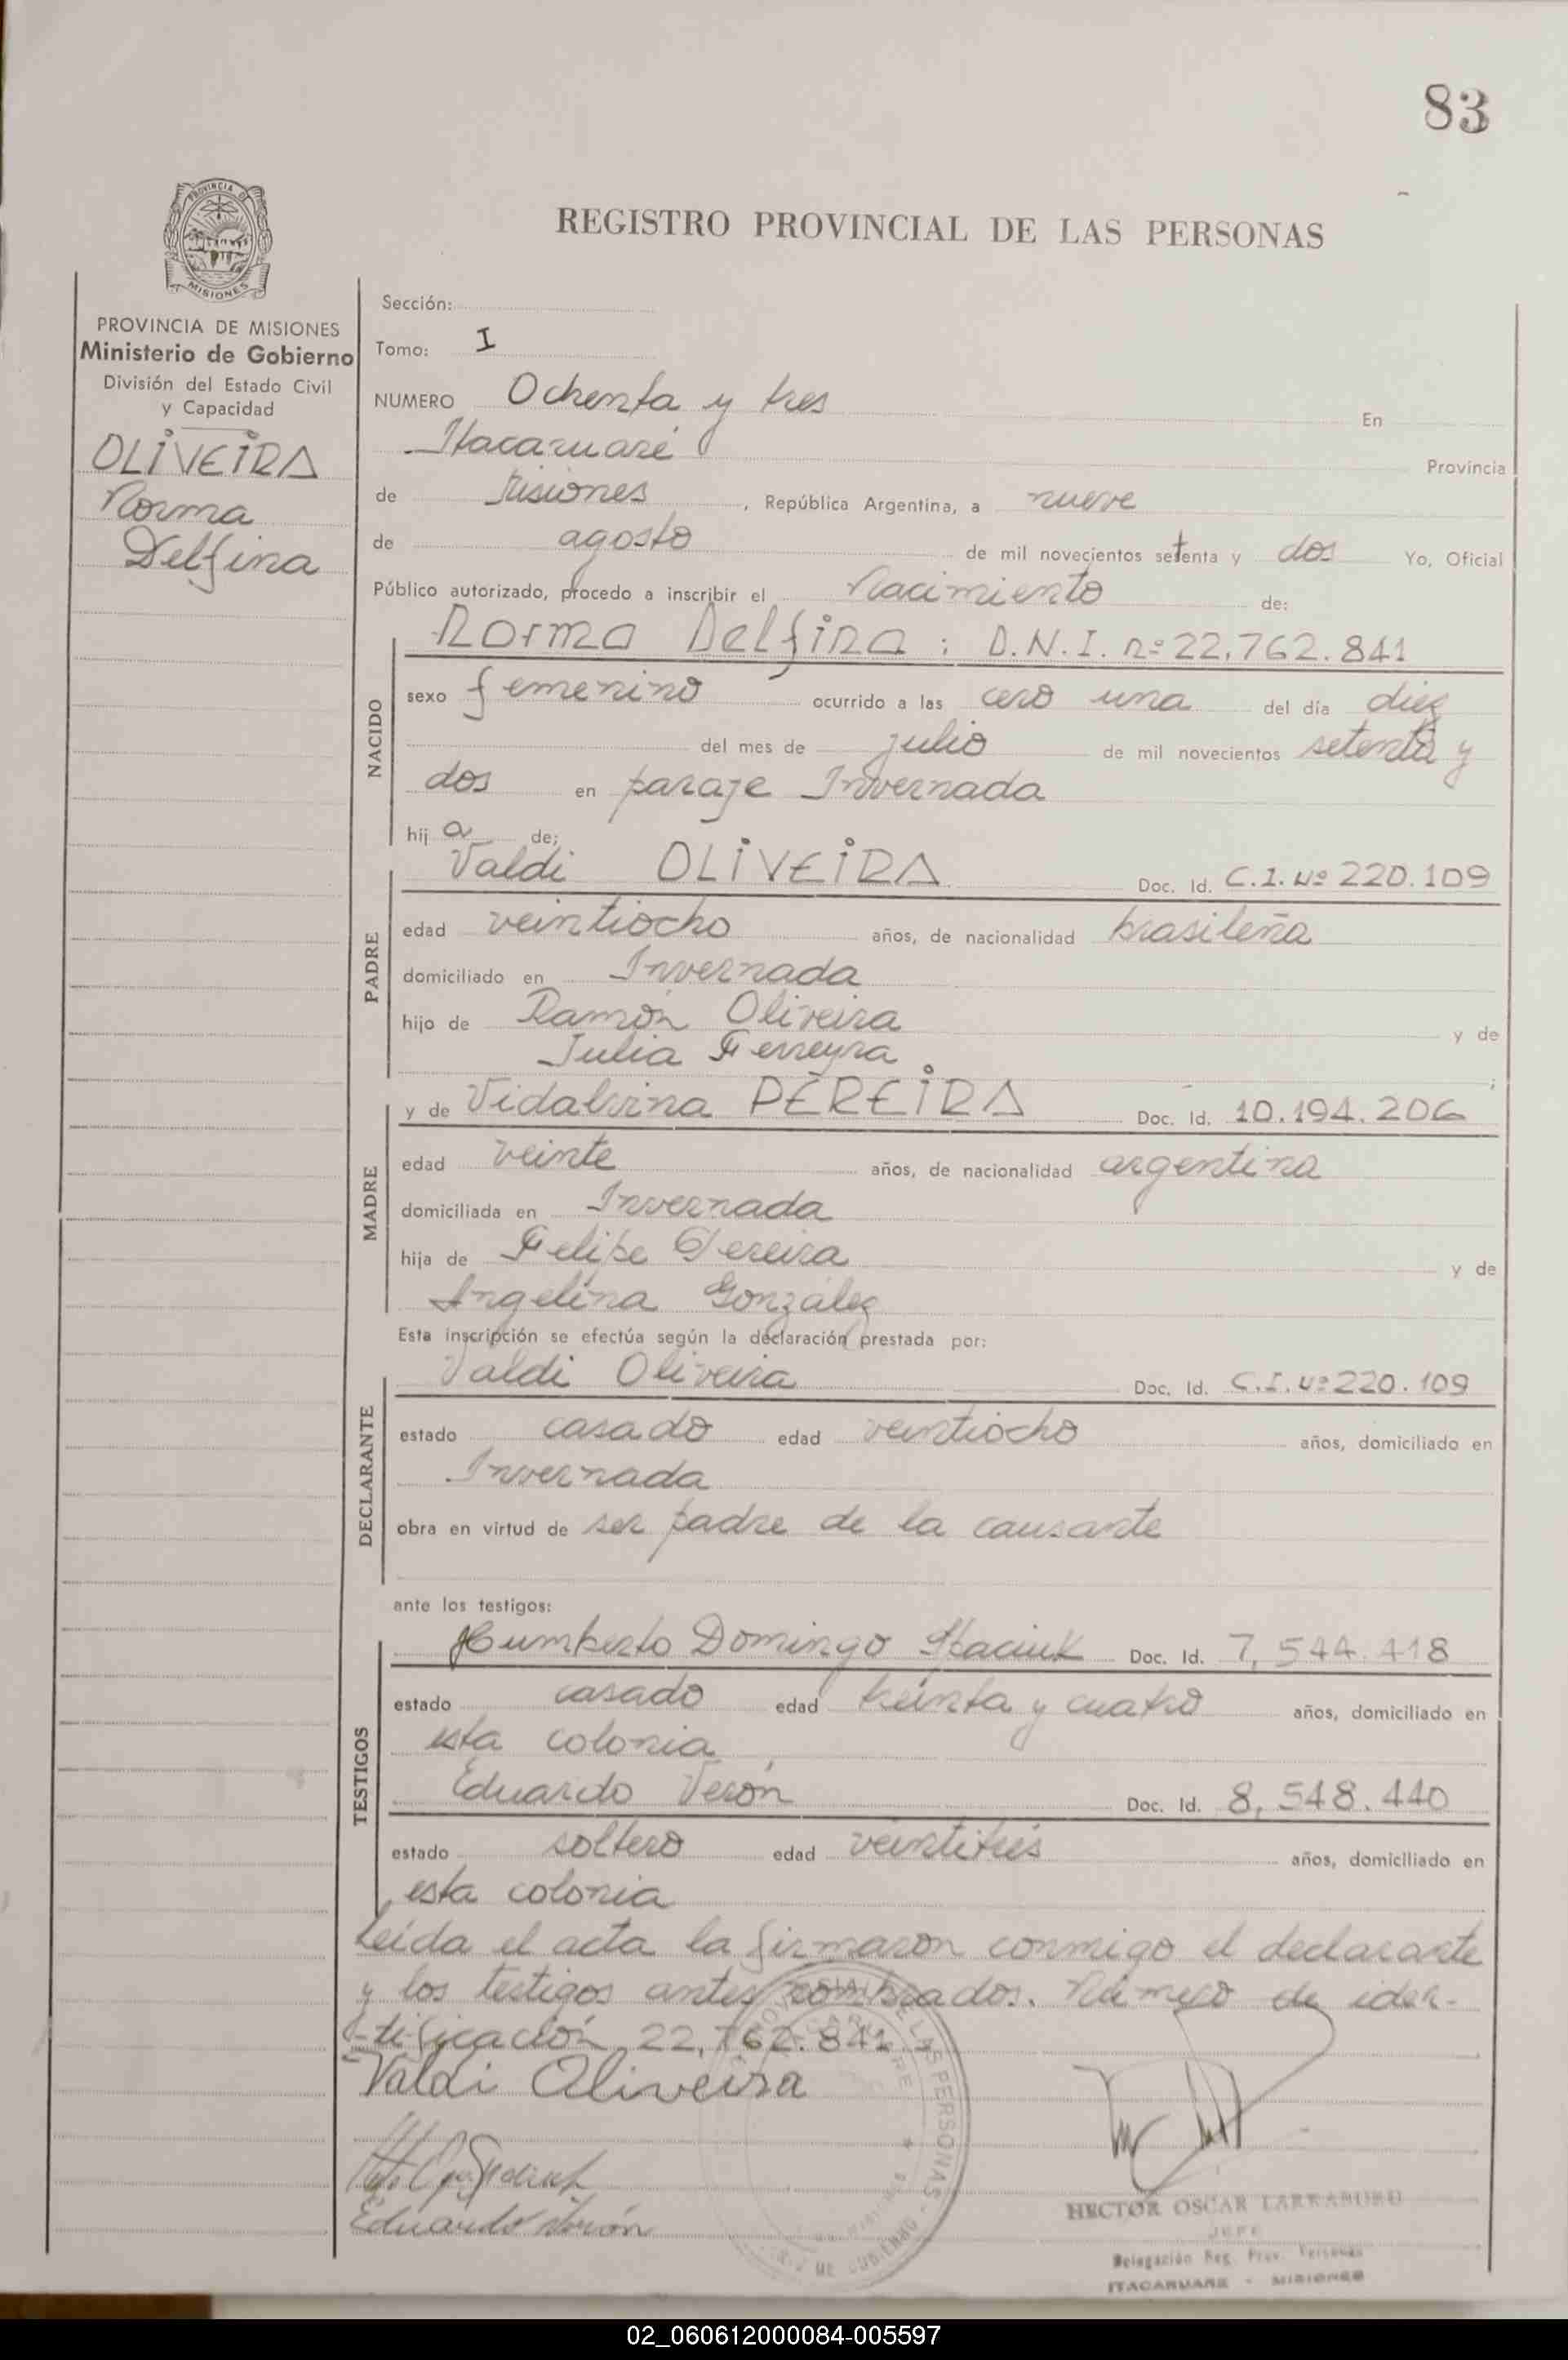 83
PROVINCIA DE
MISIONES
REGISTRO PROVINCIAL DE LAS PERSONAS
PROVINCIA DE MISIONES
Ministerio de Gobierno
División del Estado Civil
y Capacidad
OLIVEIRA
Norma
Delfina
Sección:
Tomo: I
NUMERO Ochenta y tres En
Itacaruaré Provincia
de Misiones, República Argentina, a nueve
de agosto de mil novecientos setenta y dos Yo, Oficial
Público autorizado, procedo a inscribir el Nacimiento de:
NACIDO
Norma Delfina; D.N.I. nº 22.762.841
sexo femenino ocurrido a las cero una del día diez
del mes de julio de mil novecientos setenta y
dos en paraje Invernada
hija de;
PADRE
Valdi OLIVEIRA Doc. Id. C.I. Nº 220.109
edad veintiocho años, de nacionalidad brasileña
domiciliado en Invernada
hijo de Ramón Oliveira y de
Julia Ferreyra ;
MADRE
y de Vidalvina PEREIRA Doc. Id. 10.194.206
edad veinte años, de nacionalidad argentina
domiciliada en Invernada
hija de Felipe Pereira y de
Angelina González
Esta inscripción se efectúa según la declaración prestada por:
DECLARANTE
Valdi Oliveira Doc. Id. C.I. Nº 220.109
estado casado edad veintiocho años, domiciliado en
Invernada
obra en virtud de ser padre de la causante
ante los testigos:
TESTIGOS
Humberto Domingo Spaciuk Doc. Id. 7,544.418
estado casado edad treinta y cuatro años, domiciliado en
esta colonia
Eduardo Verón Doc. Id. 8,548.440
estado soltero edad veintitrés años, domiciliado en
esta colonia
Leída el acta la firmaron conmigo el declarante
y los testigos antes nombrados. Número de iden-
tificación 22,762.841.
Valdi Oliveira
Eduardo Verón
LAS PERSONAS
HECTOR OSCAR LARRABURU
JEFE
Delegación Reg. Prov. Personas
ITACARUARE - MISIONES
02_060612000084-005597